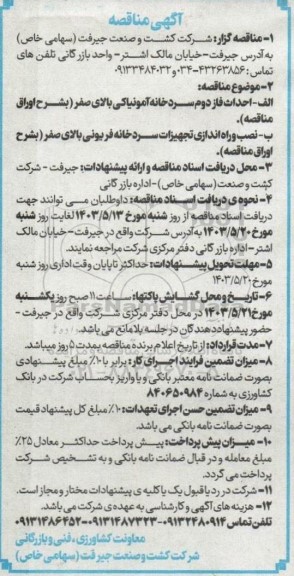 آگهی مناقصه
۱- مناقصه گزار: شرکت کشت و صنعت جیرفت (سهامی خاص)
به آدرس جیرفت- خیابان مالک اشتر- واحد بازرگانی تلفن های
تماس: ۴۳۲۶۳۸۵۶-۰۳۴ و ۰۹۱۳۳۴۸۴۰۳۲
۲- موضوع مناقصه:
الف- احداث فاز دوم سردخانه آمونیاکی بالای صفر (بشرح اوراق
مناقصه).
ب- نصب و راه اندازی تجهیزات سردخانه فریونی بالای صفر (بشرح
اوراق مناقصه).
۳- محل دریافت اسناد مناقصه و ارائه پیشنهادات: جیرفت - شرکت
کشت و صنعت (سهامی خاص) - اداره بازرگانی
۴- نحوه ی دریافت اسناد مناقصه: داوطلبان می توانند جهت
دریافت اسناد مناقصه از روز شنبه مورخ ۱۴۰۳/۵/۱۳ لغایت روز شنبه
مورخ ۱۴۰۳/۵/۲۰ به آدرس شرکت واقع در جیرفت- خیابان مالک
اشتر - اداره بازرگانی دفتر مرکزی شرکت مراجعه نمایند.
۵- مهلت تحویل پیشنهادات: حداکثر تا پایان وقت اداری روز شنبه
مورخ ۱۴۰۳/۵/۲۰
۶- تاریخ و محل گشایش پاکتها: ساعت ۱۱ صبح روز یکشنبه
مورخ ۱۴۰۳/۵/۲۱ در محل دفتر مرکزی شرکت واقع در جیرفت -
حضور پیشنهاد دهندگان در جلسه بلامانع می باشد.
۷- مدت قرارداد: از تاریخ اعلام برنده مناقصه بمدت ۵ روز میباشد.
۸- میزان تضمین فرآیند اجرای کار: برابر با ۱۰٪ مبلغ پیشنهادی
بصورت ضمانت نامه معتبر بانکی و یا واریز بحساب شرکت در بانک
کشاورزی به شماره ۸۴۰۶۵۰۹۸۴
۹- میزان تضمین حسن اجرای تعهدات: ۱۰٪ مبلغ کل پیشنهاد قیمت
بصورت ضمانت نامه بانکی می باشد.
۱۰- میزان پیش پرداخت: پیش پرداخت حداکثر معادل ۲۵٪
مبلغ معامله و در قبال ضمانت نامه بانکی و به تشخیص شرکت
پرداخت می گردد.
۱۱- شرکت در رد یا قبول یک یا کلیه ی پیشنهادات مختار و مجاز است.
۱۲- هزینه های آگهی و کارشناسی به عهده ی شرکت می باشد.
تلفن تماس ۰۹۱۳۲۴۸۰۹۱۴-۰۹۱۳۱۴۸۷۳۲۳-۰۹۱۳۱۴۸۶۴۵۲
معاونت کشاورزی، فنی و بازرگانی
شرکت کشت و صنعت جیرفت (سهامی خاص)